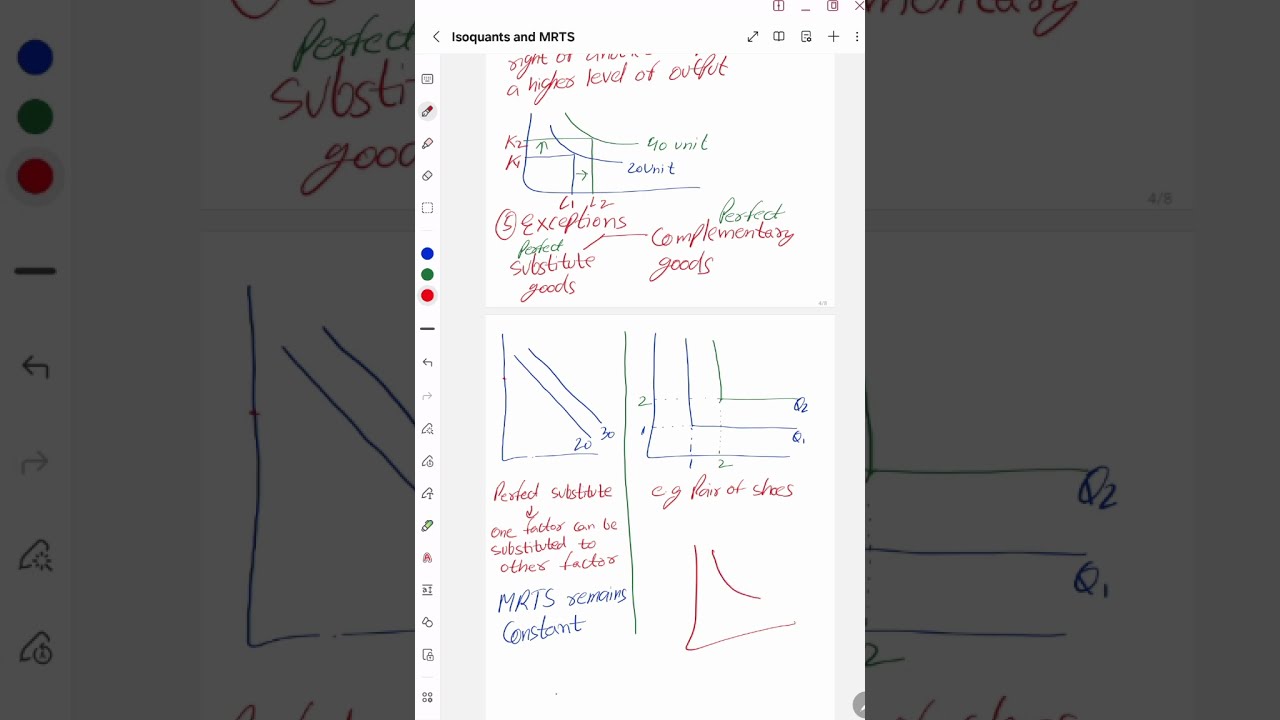 Isoquants and MRTS
right of
a higher level of output
K2
K1
40 unit
20 Unit
L1 L2
⑤ Exceptions
Perfect
substitute
goods
Perfect
Complementary
goods
4/8
20 30
2
1
Q2
Q1
1 2
Perfect substitute
↓
One factor can be
substituted to
other factor
MRTS remains
Constant
e g Pair of shoes
Perfect
substitut
good
mentary
4/8
Q2
Q1
2